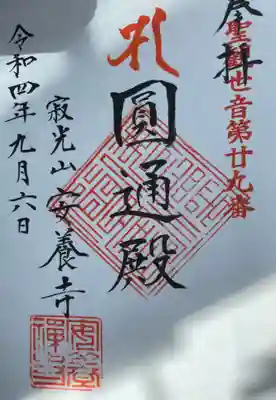 奉拝
聖觀世音第廿九番
圓通殿
寂光山安養寺
令和四年九月六日
安養禪寺